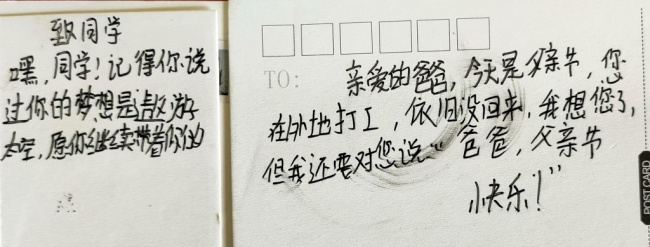 致同学
嘿,同学!记得你说
过你的梦想是遨游
太空,愿你继续带着你的
TO:
亲爱的爸爸,今天是父亲节,您
在外地打工,依旧没回来,我想您了,
但我还要对您说:“爸爸,父亲节
快乐!”
POST CARD